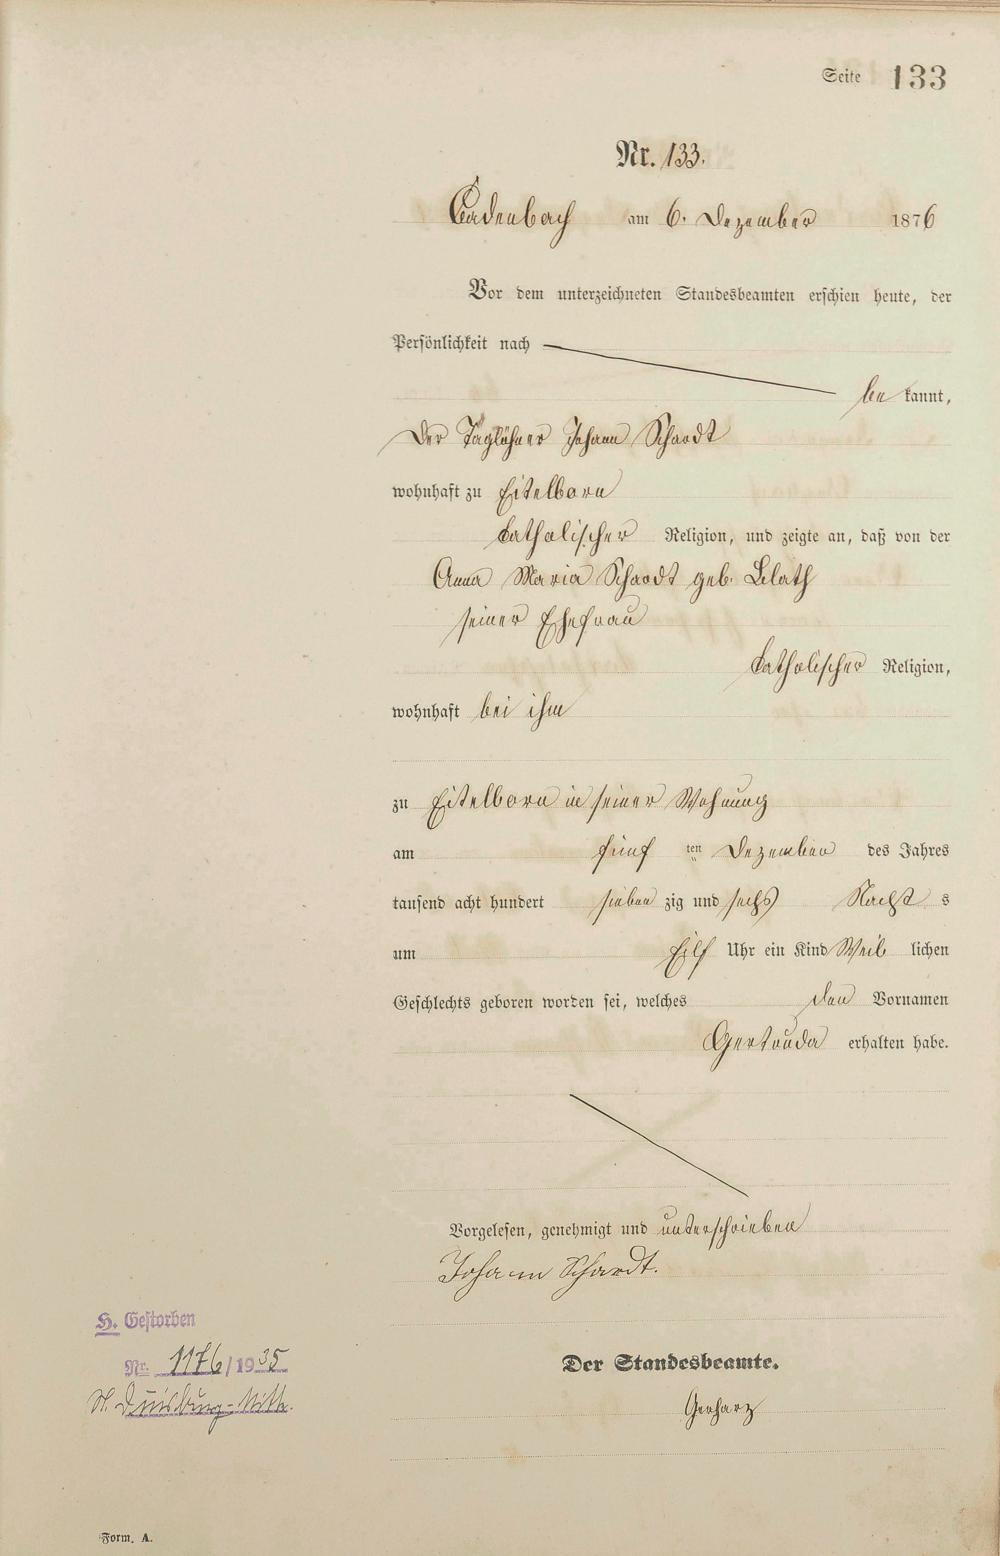 Seite 133
Nr. 133.
Cadenbach am 6. Dezember 1876
Vor dem unterzeichneten Standesbeamten erschien heute, der
Persönlichkeit nach
be kannt,
der Taglöhner Johann Schardt
wohnhaft zu Eitelborn
katholischer Religion, und zeigte an, daß von der
Anna Maria Schardt geb. Blath
seiner Ehefrau
katholischer Religion,
wohnhaft bei ihm
zu Eitelborn in seiner Wohnung
am fünf ten Dezember des Jahres
tausend acht hundert sieben zig und sechs Nacht s
um Eilf Uhr ein Kind Weib lichen
Geschlechts geboren worden sei, welches den Vornamen
Gertruda erhalten habe.
Vorgelesen, genehmigt und unterschrieben
Johann Schardt.
H. Gestorben
Nr. 1176/1935
St. Duisburg-Mitte.
Der Standesbeamte.
Gerharz
Form. A.